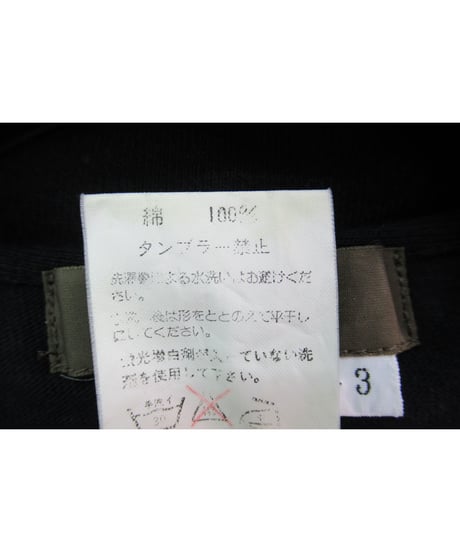 綿 100%
タンブラー禁止
洗濯機による水洗いはお避けくだ
さい。
後は形をととのえて平干し
にしてください。
蛍光増白剤が入っていない洗
剤を使用して下さい。
手洗イ
30
3